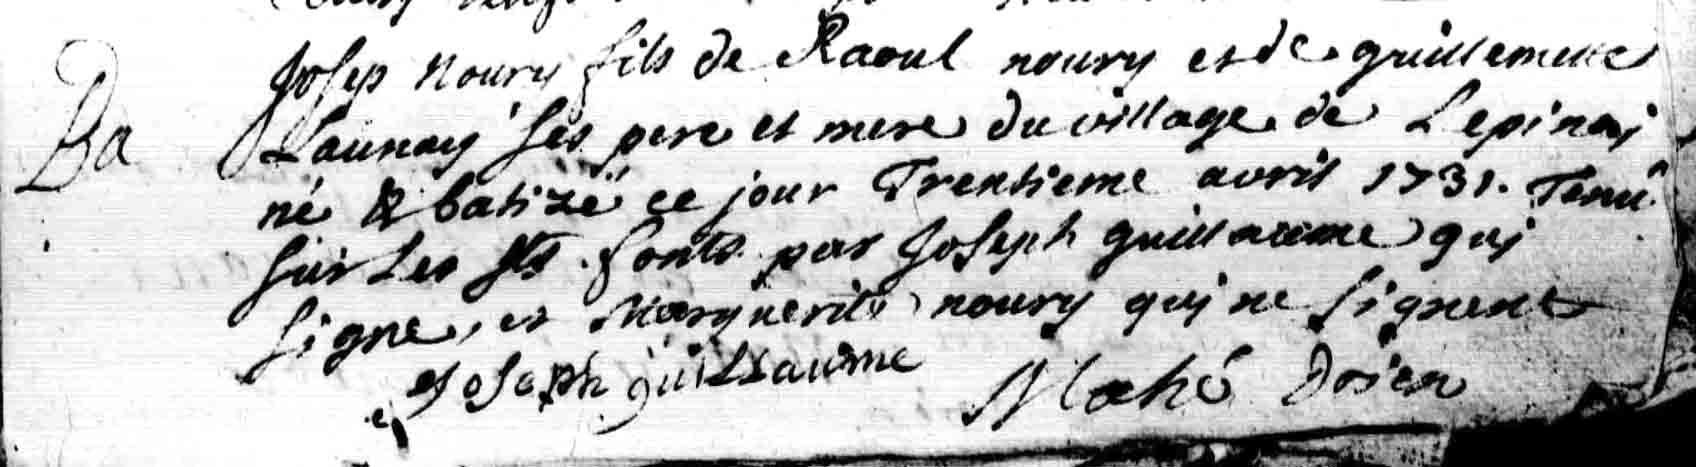 Josep Noury fils de Raoul noury et de guillemette
Ba
Launay ses pere et mere du village de Lepinay
né & batizé ce jour Trentieme avril 1731. Tenu
sur Les sts fonts par Joseph guillaume qui
signe, et Marguerite noury qui ne signent
Joseph guillaume
Mahé Doien